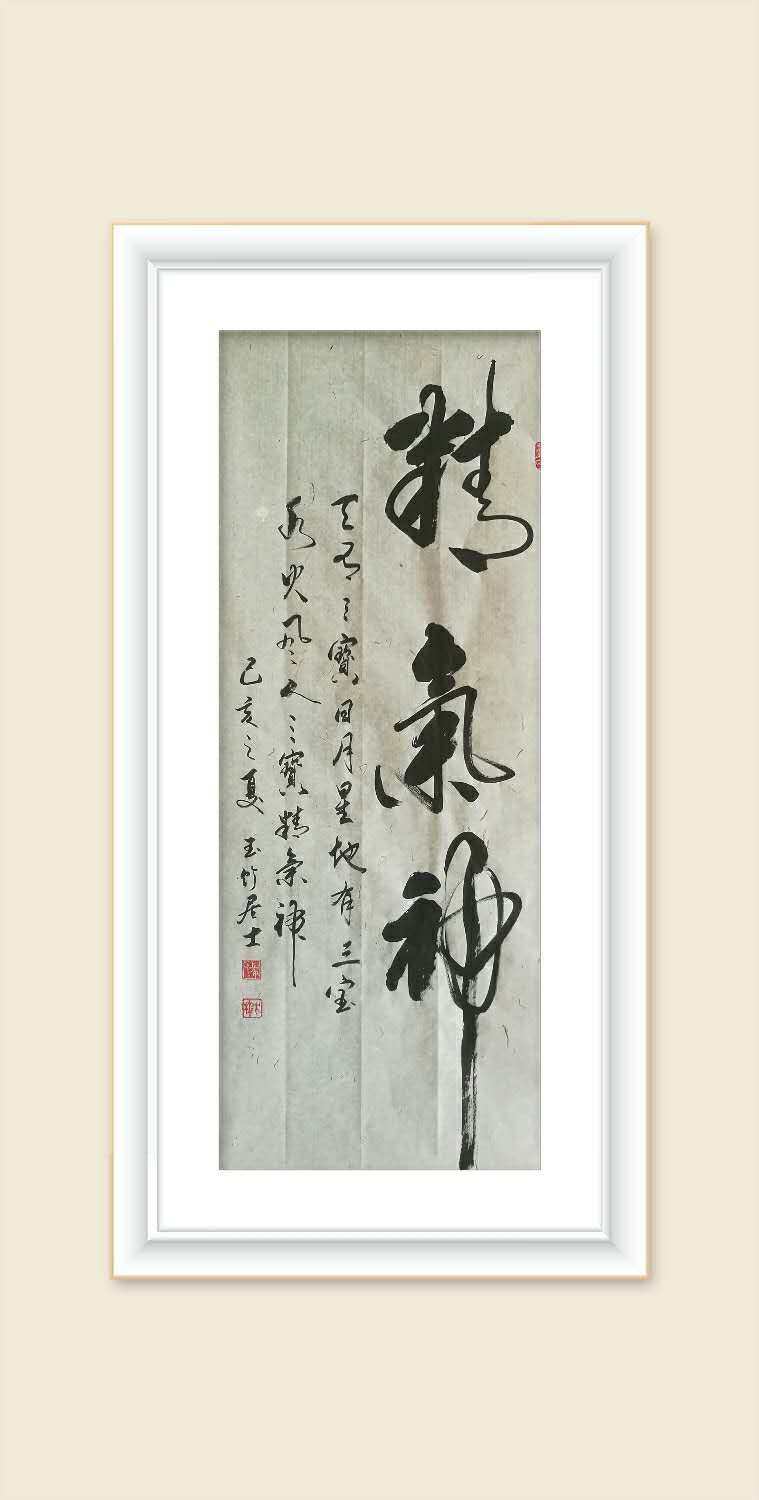 精氣神
天有三寶日月星地有三宝
水火風人三寶精氣神
己亥之夏 玉竹居士